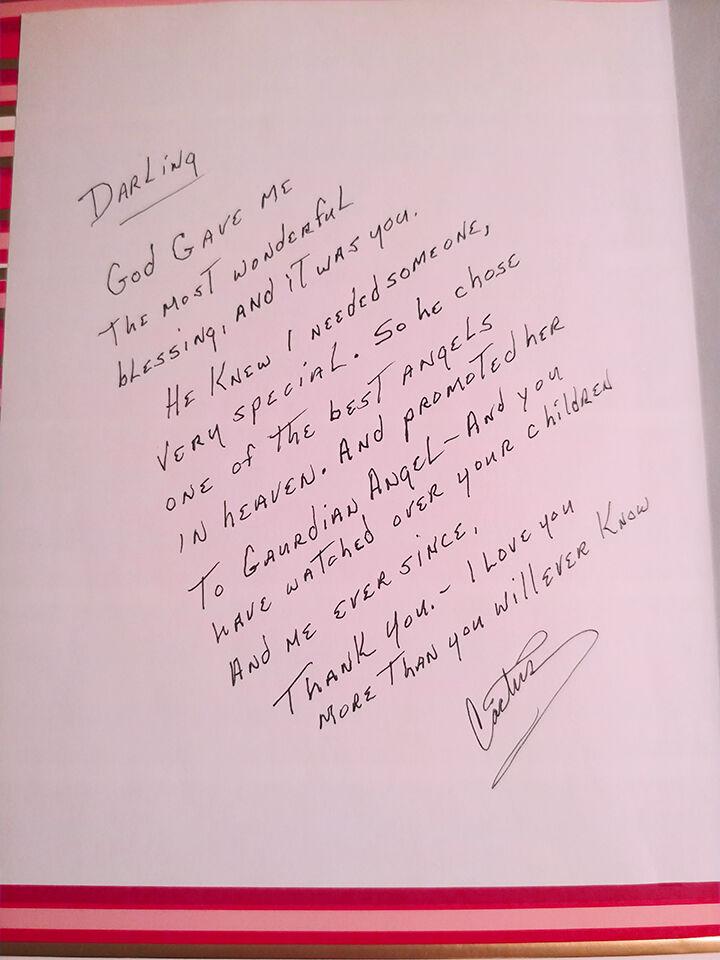 Darling
God Gave me
the most wonderful
blessing, and it was you.
He Knew I needed someone,
very special. So he chose
one of the best angels
in heaven. And promoted her
To Gaurdian Angel - And you
have watched over your children
And me ever since,
Thank you. - I love you
more than you will ever Know
Cactus